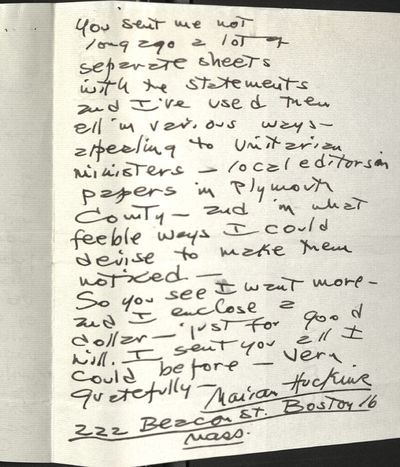 You sent me not
long ago a lot of
separate sheets
with the statements
and I've used them
all in various ways —
appealing to Unitarian
ministers — local editors in
papers in Plymouth
County — and in what
feeble ways I could
devise to make them
noticed —
So you see I want more —
and I enclose a
dollar — just for good
will. I sent you all I
could before — Very
gratefully —
222 Beacon St. Boston 16
Mass.